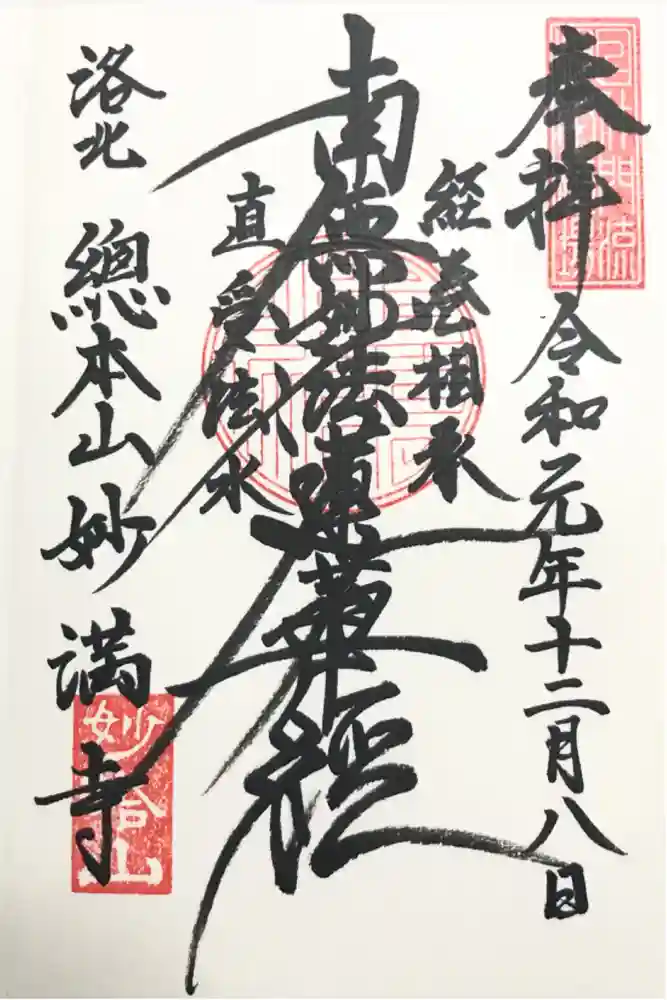 奉拝
令和元年十二月八日
経巻相承
南無妙法蓮華経
直受法水
洛北
總本山妙満寺
妙塔山